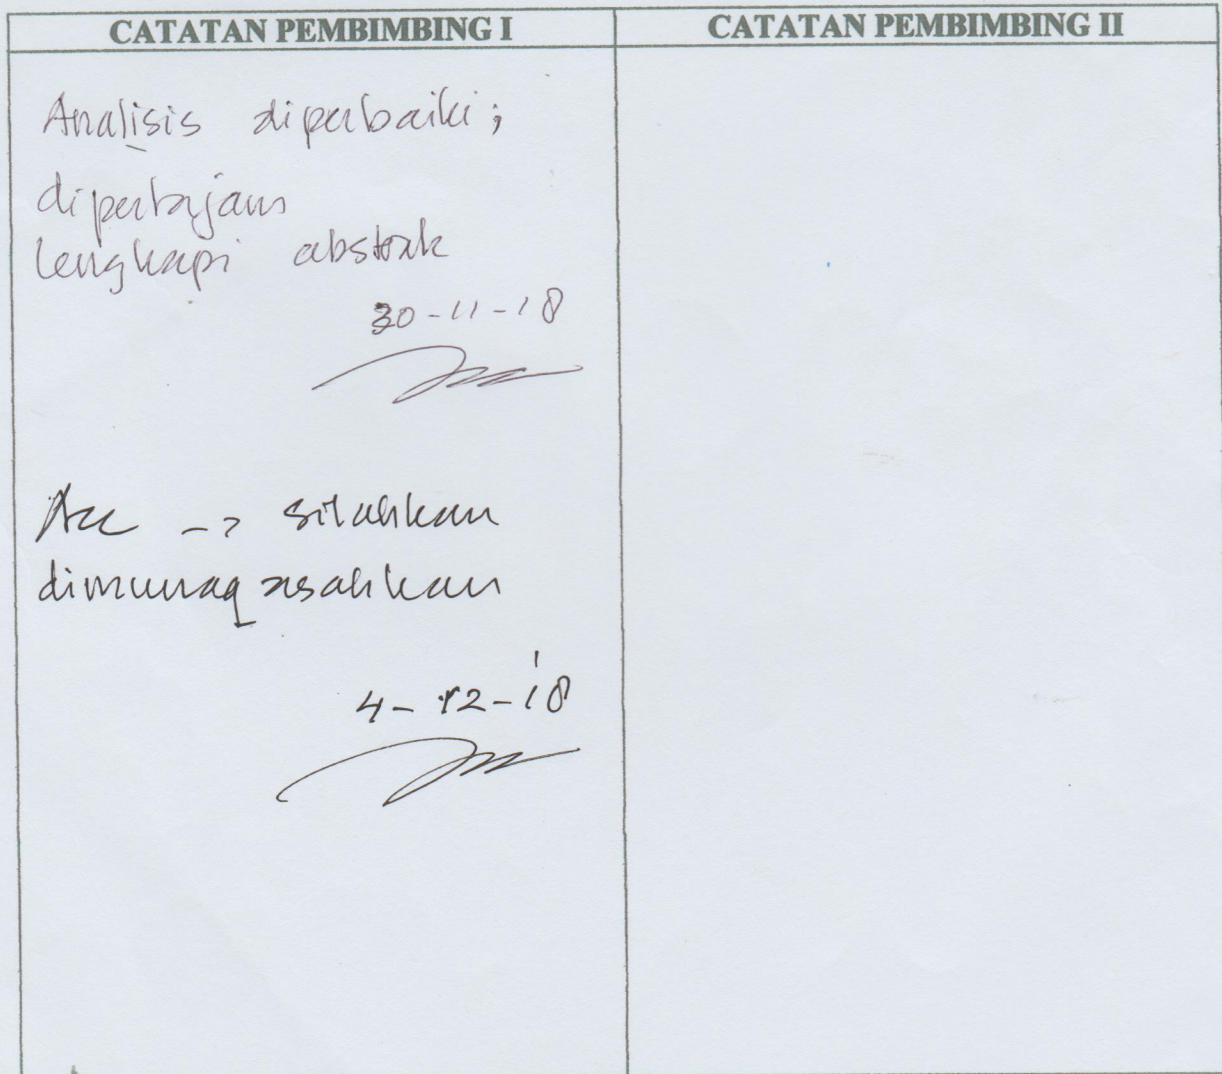 CATATAN PEMBIMBING I
CATATAN PEMBIMBING II
Analisis diperbaiki;
dipertajam
lengkapi abstrak
30-11-18
Acc -> silahkan
dimunaqasahkan
4-12-18